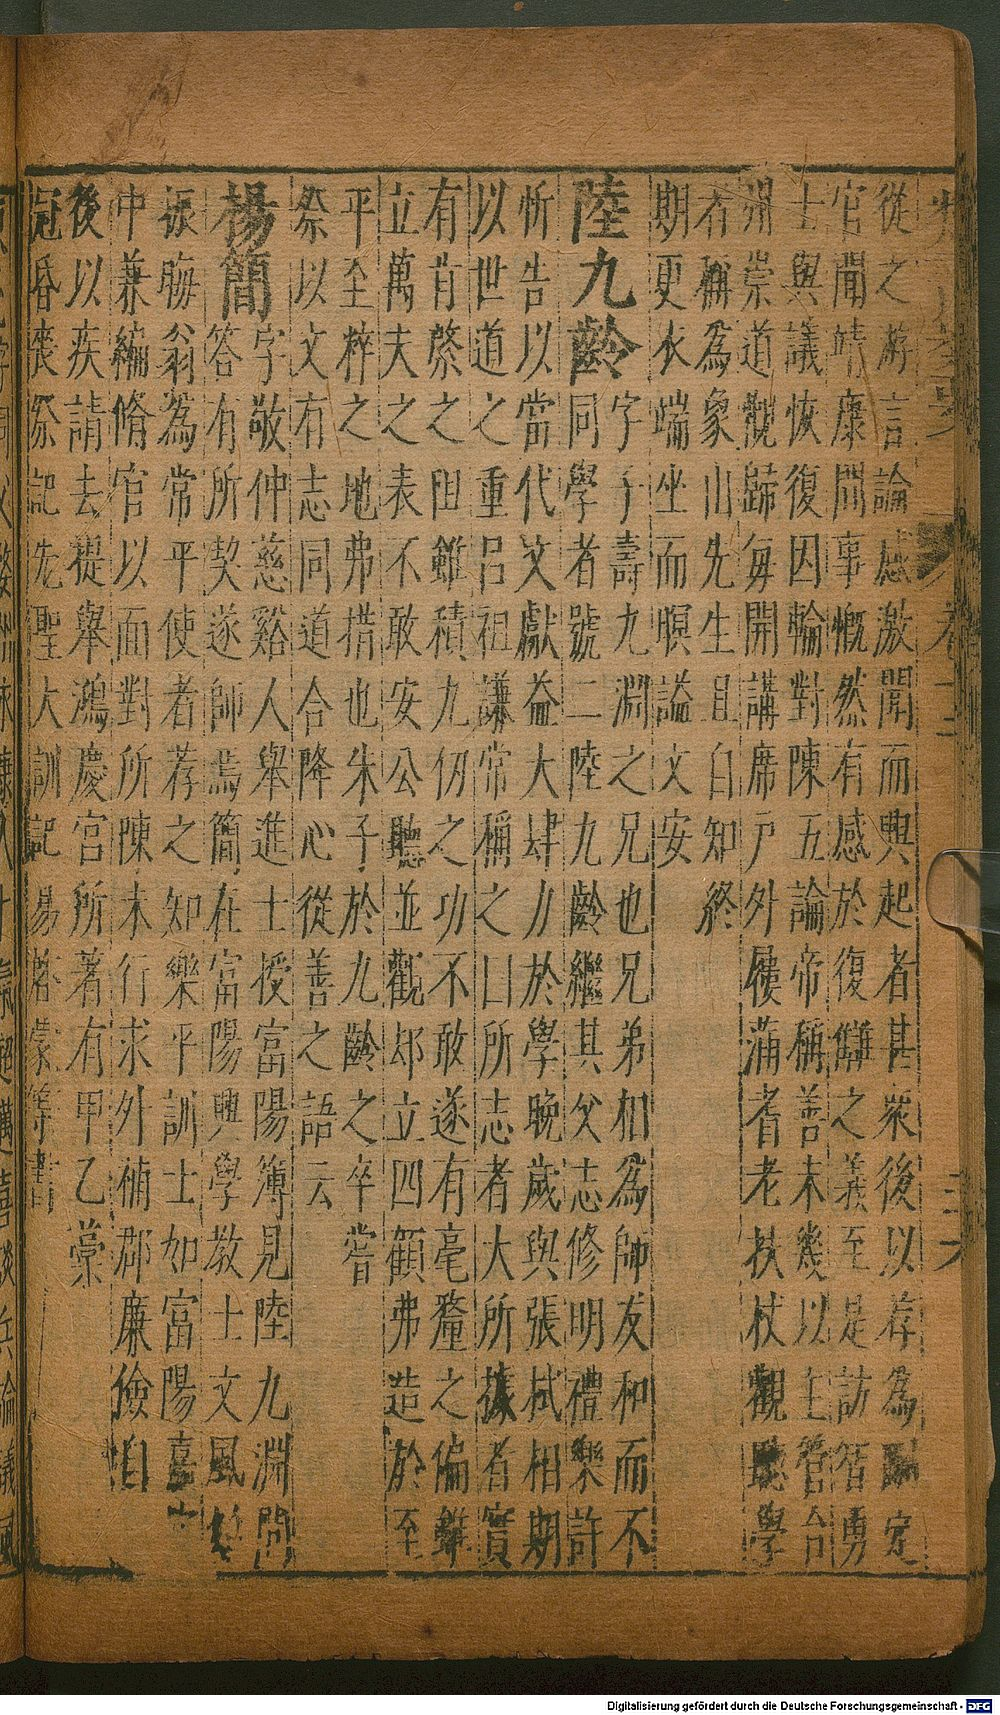 從之游言論感激聞而興起者甚衆後以荐為定
官聞靖康間事慨然有感於復讎之義至是訪智勇
士與議恢復因輪對陳五論帝稱善未幾以主管台
州崇道觀歸每開講席户外屨滿耆老扶杖觀聽學
者稱為象山先生且自知終
期更衣端坐而暝謚文安
陸九齡字子壽九淵之兄也兄弟相為師友和而不
同學者號二陸九齡繼其父志修明禮樂許
忻告以當代文獻益大肆力於學晚歲與張栻相期
以世道之重呂祖謙常稱之曰所志者大所據者實
有肯綮之阻雖積九仞之功不敢遂有毫釐之偏雖
立萬夫之表不敢安公聽並觀却立四顧弗造於至
平至粹之地弗措也朱子於九齡之卒嘗
祭以文有志同道合降心從善之語云
楊簡字敬仲慈谿人舉進士授富陽簿見陸九淵問
答有所契遂師焉簡在富陽興學教士文風
振晦翁為常平使者荐之知樂平訓士如富陽嘉
中兼編脩官以面對所陳未行求外補郡廉儉自
後以疾請去提舉鴻慶宮所著有甲乙藁
冠昏喪祭記先聖大訓記易啓蒙等書
卷十二
三六
Digitalisierung gefördert durch die Deutsche Forschungsgemeinschaft - DFG